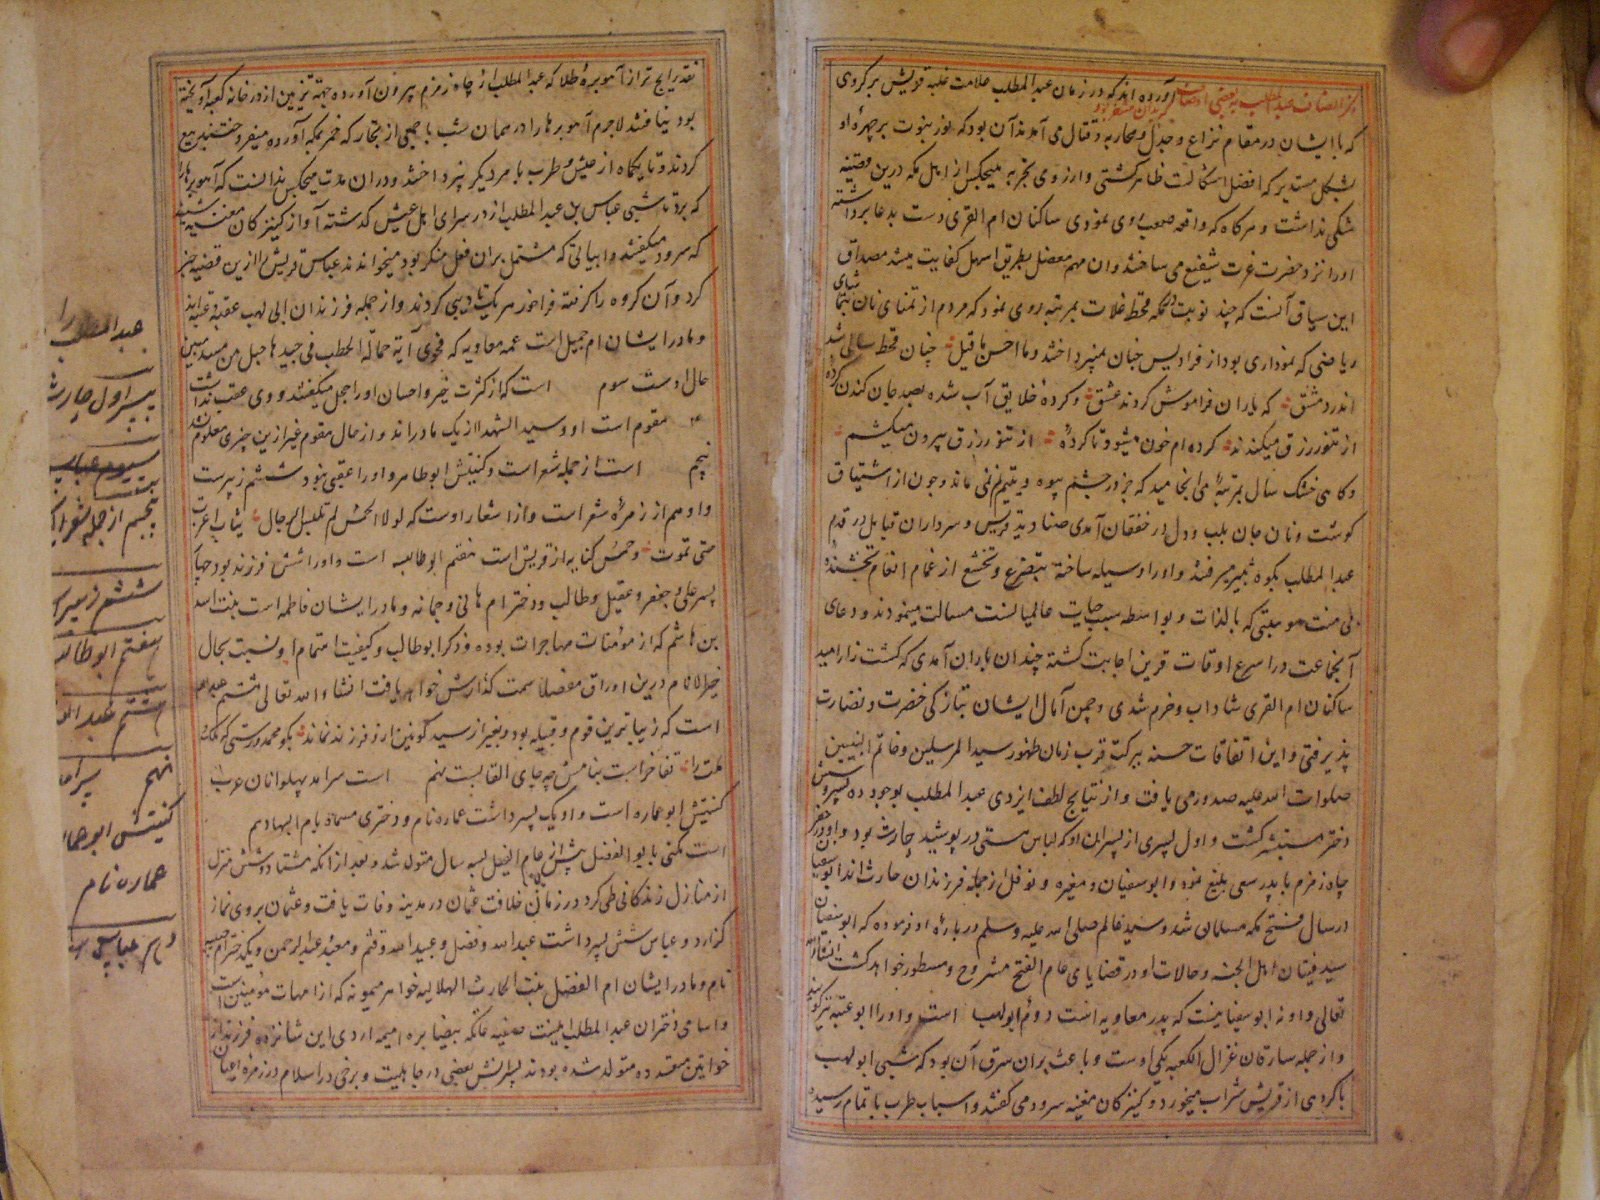 ذکر اتصاف عبدالمطلب ببعضی از صفات
آورده اند که در زمان عبدالمطلب علامت غلبه قریش بر گروهی
که با ایشان در مقام نزاع و جدل و محاربه و قتال می آمدند آن بود که نور نبوت بر چهره او
بشکل مستدیر که افضل اشکالست ظاهر گشتی و از روی تجربه هیچکس از اهل مکه درین قضیه
شکی نداشت و هر گاه که واقعه صعب روی نمودی ساکنان ام القری دست بدعا برداشته
او را نزد حضرت عزت شفیع می ساختند و آن مهم معضل بطریق اسهل کفایت میشد مصداق
این سیاق آنست که چند نوبت در مکه قحط غلات بمرتبه روی نمود که مردم از تمنای نان
ریاضی که نموداری بود از فرادیس جنان نمیپرداختند و ما احسن ما قیل چنان قحط سالی شد
اندر دمشق که یاران فراموش کردند عشق
از تنور رزق میکندند کرده ام خون میشود تا کرده از تنور رزق بیرون میکشم
و گاهی خشک سال بمرتبه می انجامید که جز در چشم بیوه و یتیم نمی ماند و چون از اشتیاق
گوشت و نان جان بلب و دل در خفقان آمدی صنادید قریش و سرداران قبایل در قدم
عبدالمطلب بکوه ثبیر میرفتند و او را وسیله ساخته بتضرع و تخشع از غمام انعام بخشنده
بی منت موهبتی که بالذات و بواسطه سبب حیات عالمیانست مسالت مینمودند و دعای
آنجماعت در اسرع اوقات قرین اجابت گشته چندان باران آمدی که کشت زار امید
ساکنان ام القری شاداب و خرم شدی و چمن آمال ایشان بتازگی خضرت و نضارت
پذیرفتی و این اتفاقات حسنه ببرکت قرب زمان ظهور سید المرسلین و خاتم النبیین
صلوات الله علیه صدور می یافت و از نتایج لطف ایزدی عبدالمطلب بوجود ده پسر و شش
دختر مستبشر گشت و اول پسری از پسران او که لباس هستی در پوشید حارث بود و او در حفر
چاه زمزم با پدر سعی بلیغ نمود و ابوسفیان و مغیره و نوفل از جمله فرزندان حارث اند ابوسفیان
در سال فتح مکه مسلمان شد و سید عالم صلی الله علیه وسلم در باره او فرموده که ابوسفیان
سید فتیان اهل الجنه و حالات او در قضایای عام الفتح مشروح و مسطور خواهد گشت انشاالله
تعالی و او نه ابوسفیانیست که پدر معاویه است دوم ابولهب است و او را ابوعتبه نیز گویند
و از جمله سارقان غزال الکعبه یکی اوست و باعث بران سرق آن بود که شبی ابولهب
با گروهی از قریش شراب میخورد و کنیزکان مغنیه سرود می گفتند و اسباب طرب با تمام رسیده
نقد رایج تر از آهو بره طلا که عبدالمطلب از چاه زمزم بیرون آورده جهة تزیین از در خانه کعبه آویخته
بود نیافتند لاجرم آهو برها را در همان شب با جمعی از تجار که خمر بمکه آورده میفروختند بیع
کردند و تا یکماه از عیش و طرب با مر دیگر نپرداختند و دران مدت هیچکس ندانست که آهو برها را
که برد تا شبی عباس بن عبدالمطلب از در سرای اهل عیش گذشته آواز کنیزکان مغنیه شنید
که سرود میگفتند و ابیاتی که مشتمل بران فعل منکر بود میخواندند عباس قریش را ازین قضیه خبر
کرد و آن گروه را گرفته فراخور هر یک تادیبی کردند و از جمله فرزندان ابی لهب عقبه و عتبه اند
و مادر ایشان ام جمیل است عمه معاویه که فحوی آیة حمالة الحطب فی جیدها حبل من مسد مبین
حال اوست سوم است که از کثرت خیر و احسان او را حجل میگفتند و وی عقب نداشت
مقوم است او و سید الشهدا از یک مادراند و از حال مقوم غیر ازین چیزی معلوم نشد
پنجم است از جمله شعراست و کنیتش ابوطاهر و او را عقبی نبود ششم زبیرست
و او هم از زمرة شعراست و از اشعار اوست که لولا الحمس لم تلبس الرجال ثیاب اعزة
حتی تموت و حمس کنایه از قریش است هفتم ابوطالب است و او را شش فرزند بود چهار
پسر علی و جعفر و عقیل و طالب و دختر ام هانی و جمانه و مادر ایشان فاطمه است بنت اسد
بن هاشم که از مؤمنات مهاجرات بوده و ذکر ابوطالب و کیفیت اهتمام او نسبت بحال
خیر الانام درین اوراق مفصلا سمت گذارش خواهد یافت انشاء الله تعالی هشتم عبدالله
است که زیباترین قوم و قبیله بود و بغیر از سید کونین ازو فرزند نماند
تفاخر است بنامش چه جای القابست نهم است سرآمد پهلوانان عرب
کنیتش ابوعماره است و او یک پسر داشت عماره نام و دختری مسماة بام ابیها دهم
است مکنی بابوالفضل پیش از عام الفیل بسه سال متولد شد و بعد از آنکه هشتاد و شش منزل
از منازل زندگانی طی کرد در زمان خلافت عثمان در مدینه وفات یافت و عثمان بر وی نماز
گذارد و عباس شش پسر داشت عبدالله و فضل و عبیدالله و قثم و معبد و عبدالرحمن و یک دختر ام حبیبه
نام و مادر ایشان ام الفضل بنت الحارث الهلالیه خواهر میمونه که از امهات مؤمنین است
و اسامی دختران عبدالمطلب اینست صفیه عاتکه بیضا بره امیمه اروی این شانزده فرزند از
خواتین متعدده متولد شده بودند پسرانش بعضی در جاهلیت و برخی در اسلام در زمره اعیان
عبدالمطلب را
پسر اول حارث
سیوم عباس
پنجم از جمله شعرا
ششم زبیر
هفتم ابوطالب
هشتم عبدالله
نهم
کنیتش ابوعما
عماره نام
دهم عباس